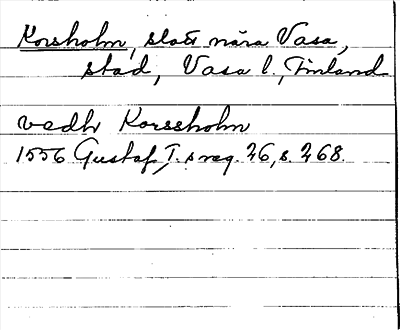 Korsholm, slott nära Vasa,
stad, Vasa l., Finland
vedh Korssholm
1556 Gustaf I. s reg. 26, s. 268.